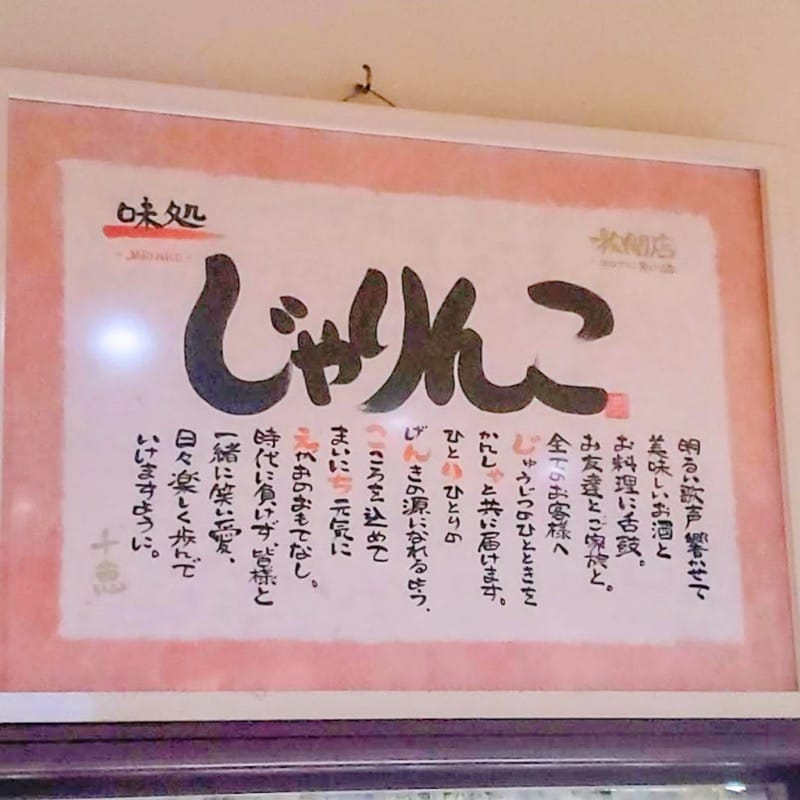 味処
じゃりんこ
明るい歌声響かせて
美味しいお酒と
お料理に舌鼓。
お友達とご家族と。
全てのお客様へ
じゅうじつのひとときを
かんしゃと共に届けます。
ひとりひとりの
げんきの源になれるよう、
こころを込めて
まいにち元気に
えがおのおもてなし。
時代に負けず、皆様と
一緒に笑い愛、
日々楽しく歩んで
いけますように。